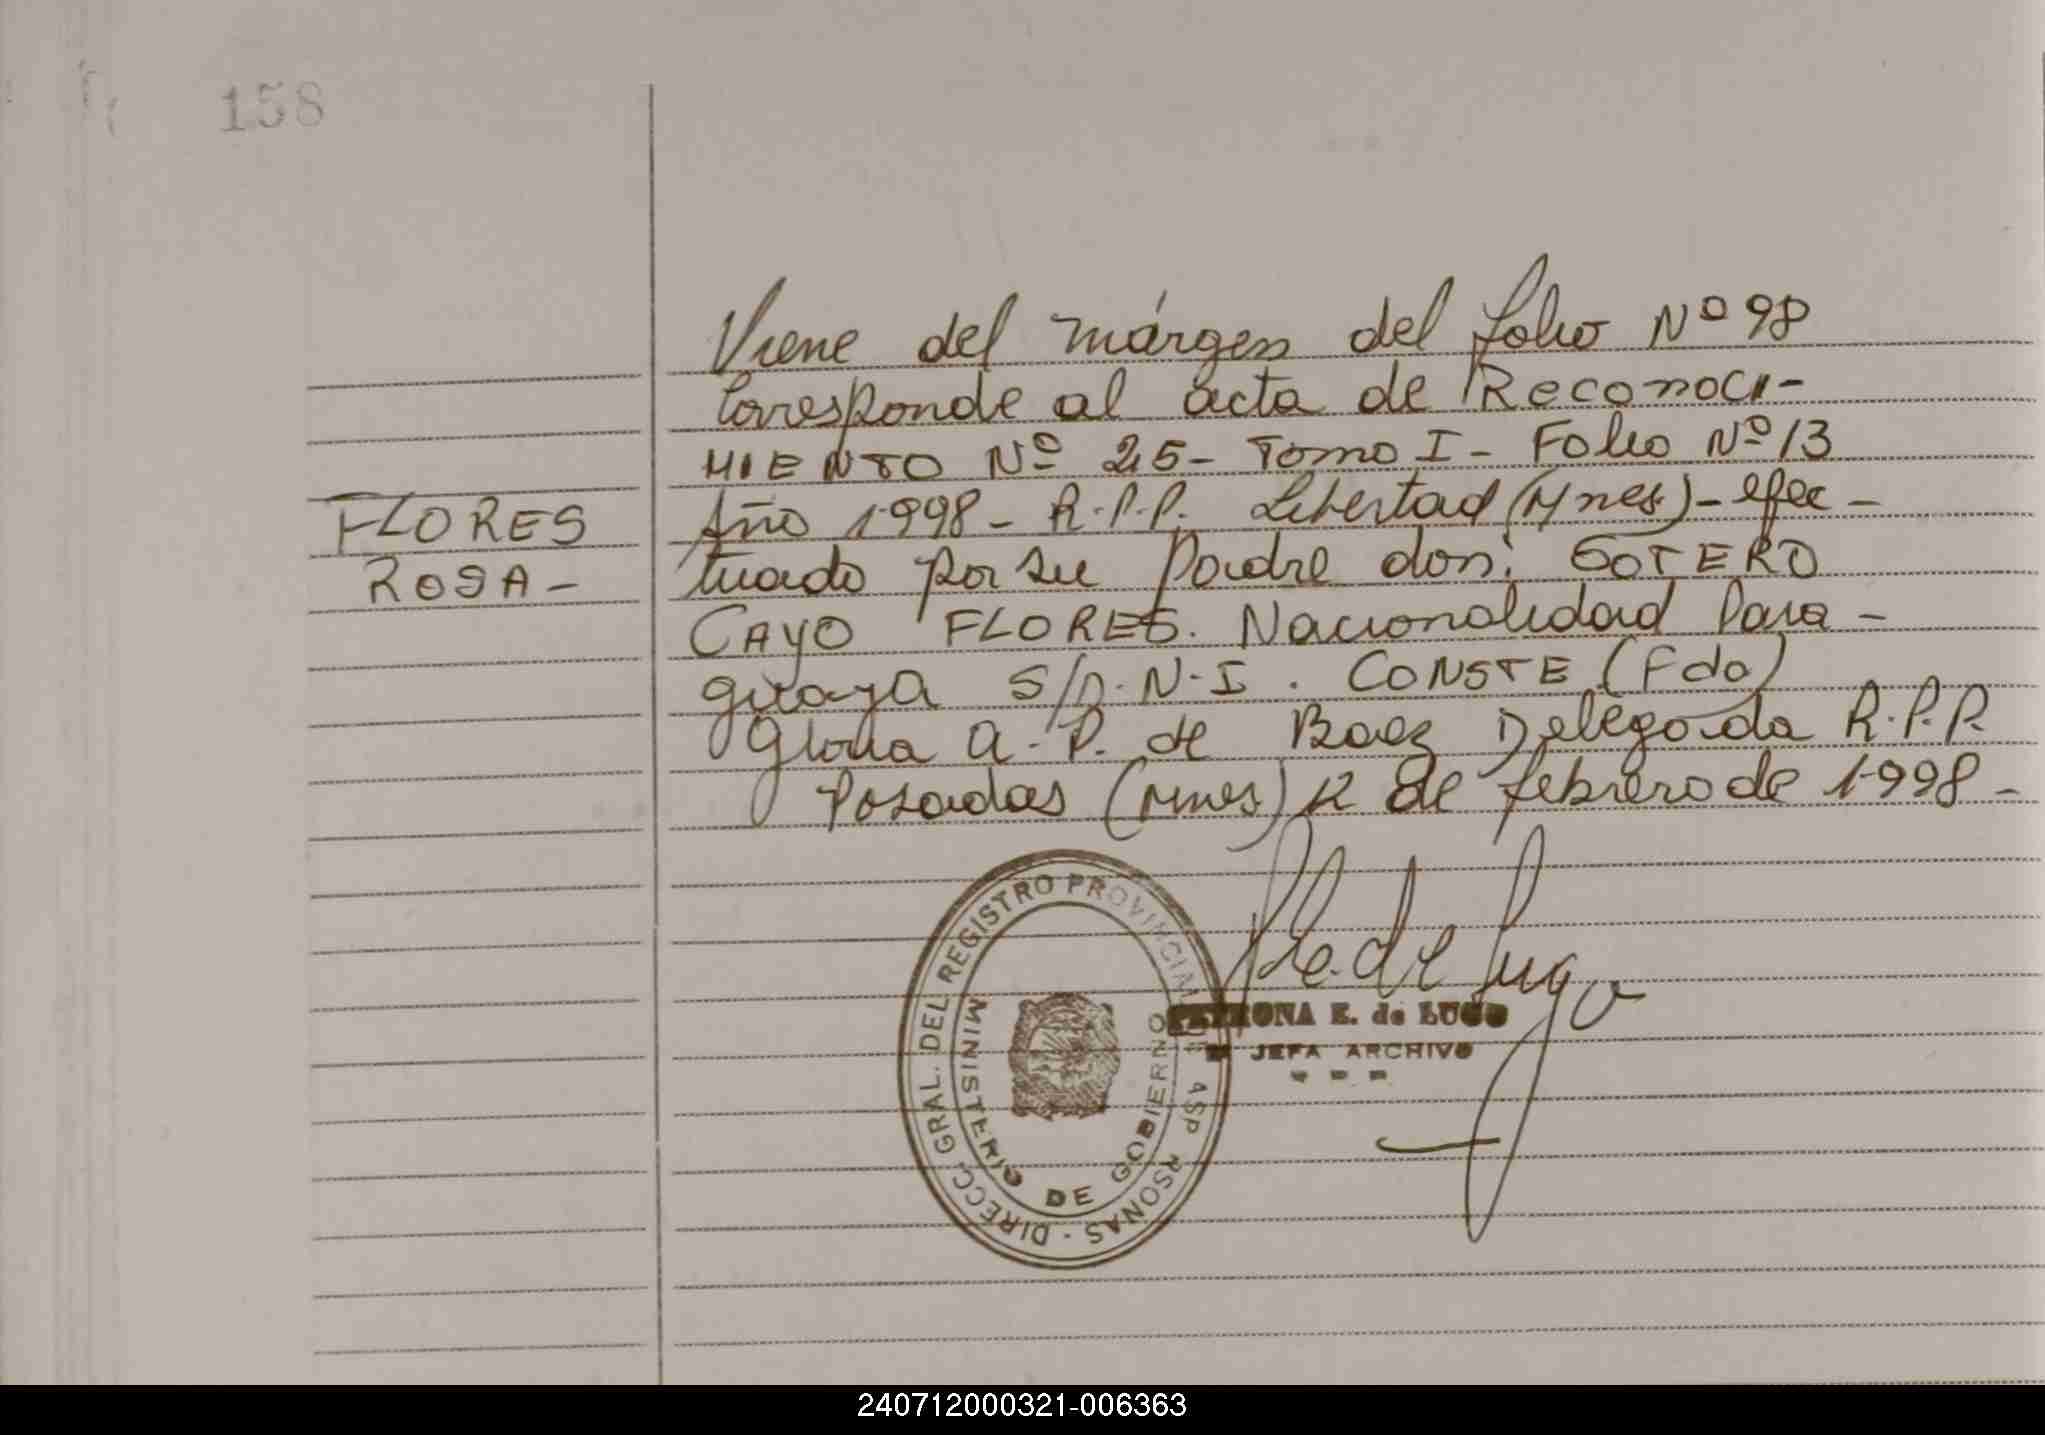 158
Viene del márgen del folio Nº 98
Corresponde al acta de Reconoci-
MIENTO Nº 25- Tomo I- Folio Nº 13
FLORES
Año 1998- R.P.P. Libertad (Mnes)- efec-
ROSA-
tuado por su Padre don: SOTERO
CAYO FLORES. Nacionalidad Para-
guaya S/D.N.I. CONSTE (Fdo)
Gloria A. P. de Baez Delegada R.P.P.
Posadas (Mnes) 12 de febrero de 1998-
DIRECC. GRAL. DEL REGISTRO PROVINCIAL DE ASP RSONAS -
MINISTERIO DE GOBIERNO
E. de Lugo
PETRONA E. de LUGO
JEFA ARCHIVO
240712000321-006363